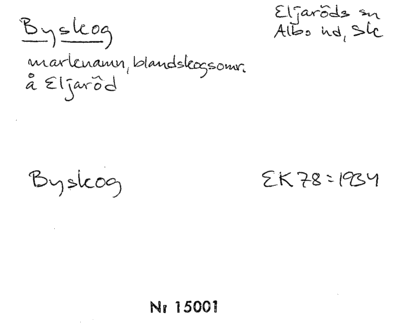 Byskog
Eljaröds sn
Albo hd, Sk
markenamn, blandskogsomr.
å Eljaröd
Byskog
EK 78 = 1934
Nr 15001